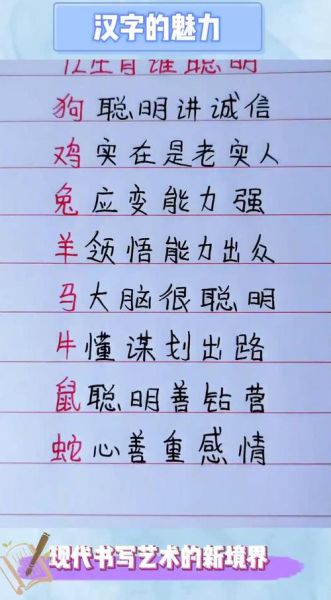 汉字的魅力
12生肖谁聪明
狗聪明讲诚信
鸡实在是老实人
兔应变能力强
羊领悟能力出众
马大脑很聪明
牛懂谋划出路
鼠聪明善钻营
蛇心善重感情
现代书写艺术的新境界